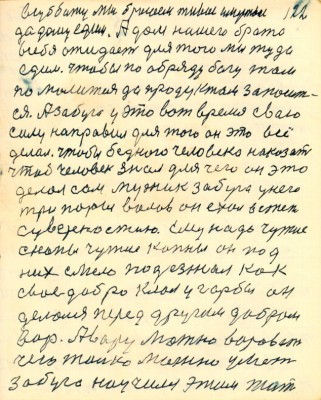 службату мы бросаем
122
да дому едим. А дом нашего брата
себя ожидает для того мы туда
едим. чтобы по обряду богу там
по молится да продуктам запаит-
ся. А Забуга у это вот время сваю
силу направил для того он это всё
делал. чтобы бедного человека наказат
чтоб человек знал для чего он это
делал сам мужик Забуга у него
три пары валов он ехал в степ
с увереностию. Ему надь чужие
снопы чужие копны он под
них смело подезжал как
свое добро клал у гарбы он
делался перед другим добром
вор. А вару можно вороват
чего толко можно уметь
Забуга научился этим